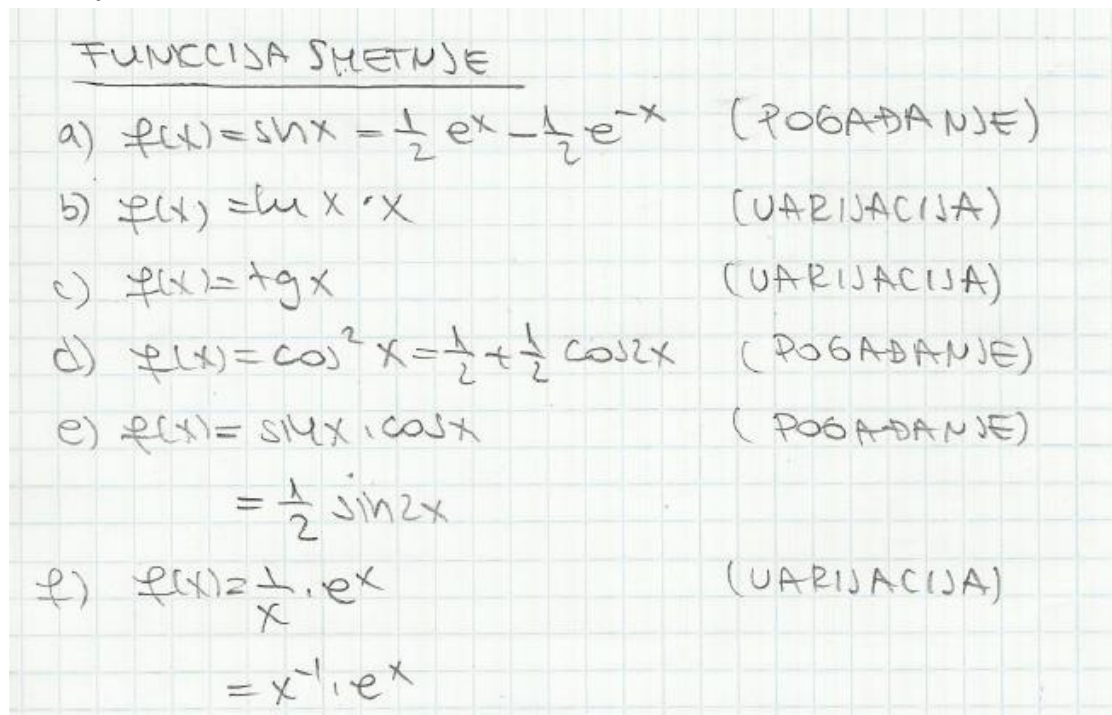 FUNKCIJA SMETNJE
a) f(x)=shx=1/2 e^x-1/2 e^-x (POGAĐANJE)
b) f(x)=ln x·x (VARIJACIJA)
c) f(x)=tgx (VARIJACIJA)
d) f(x)=cos²x=1/2+1/2 cos2x (POGAĐANJE)
e) f(x)=sinx·cosx (POGAĐANJE)
=1/2 sin2x
f) f(x)=1/x·e^x (VARIJACIJA)
=x^-1·e^x